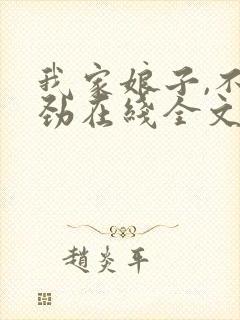 我家娘子,不
劲在线全文
趙炎平